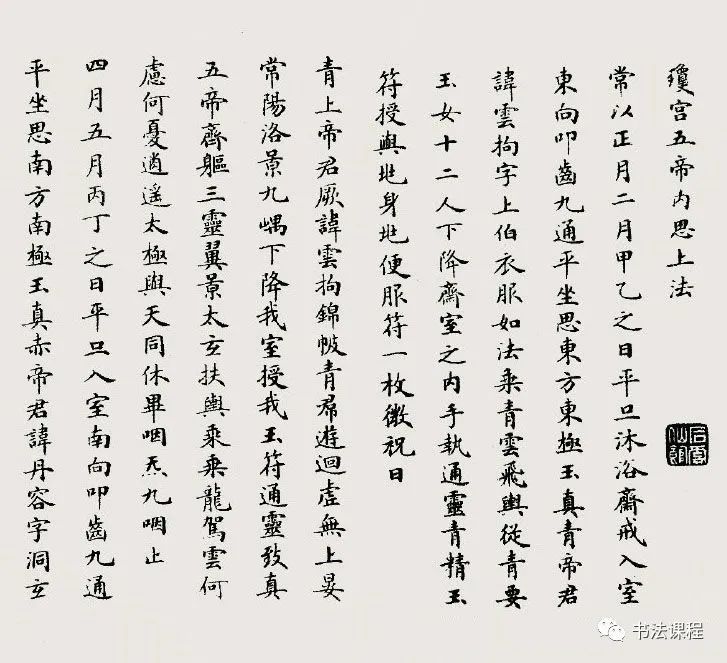 瓊宫五帝内思上法
常以正月二月甲乙之日平旦沐浴齋戒入室
東向叩齒九通平坐思東方東極玉真青帝君
諱雲拘字上伯衣服如法乘青雲飛輿從青要
玉女十二人下降齋室之内手執通靈青精玉
符授與兆身兆便服符一枚微祝曰
青上帝君厥諱雲拘錦帔青帬遊迴虛無上晏
常陽洛景九嵎下降我室授我玉符通靈致真
五帝齊軀三靈翼景太玄扶輿乘乘龍駕雲何
慮何憂逍遥太極與天同休畢咽炁九咽止
四月五月丙丁之日平旦入室南向叩齒九通
平坐思南方南極玉真赤帝君諱丹容字洞玄
书法课程